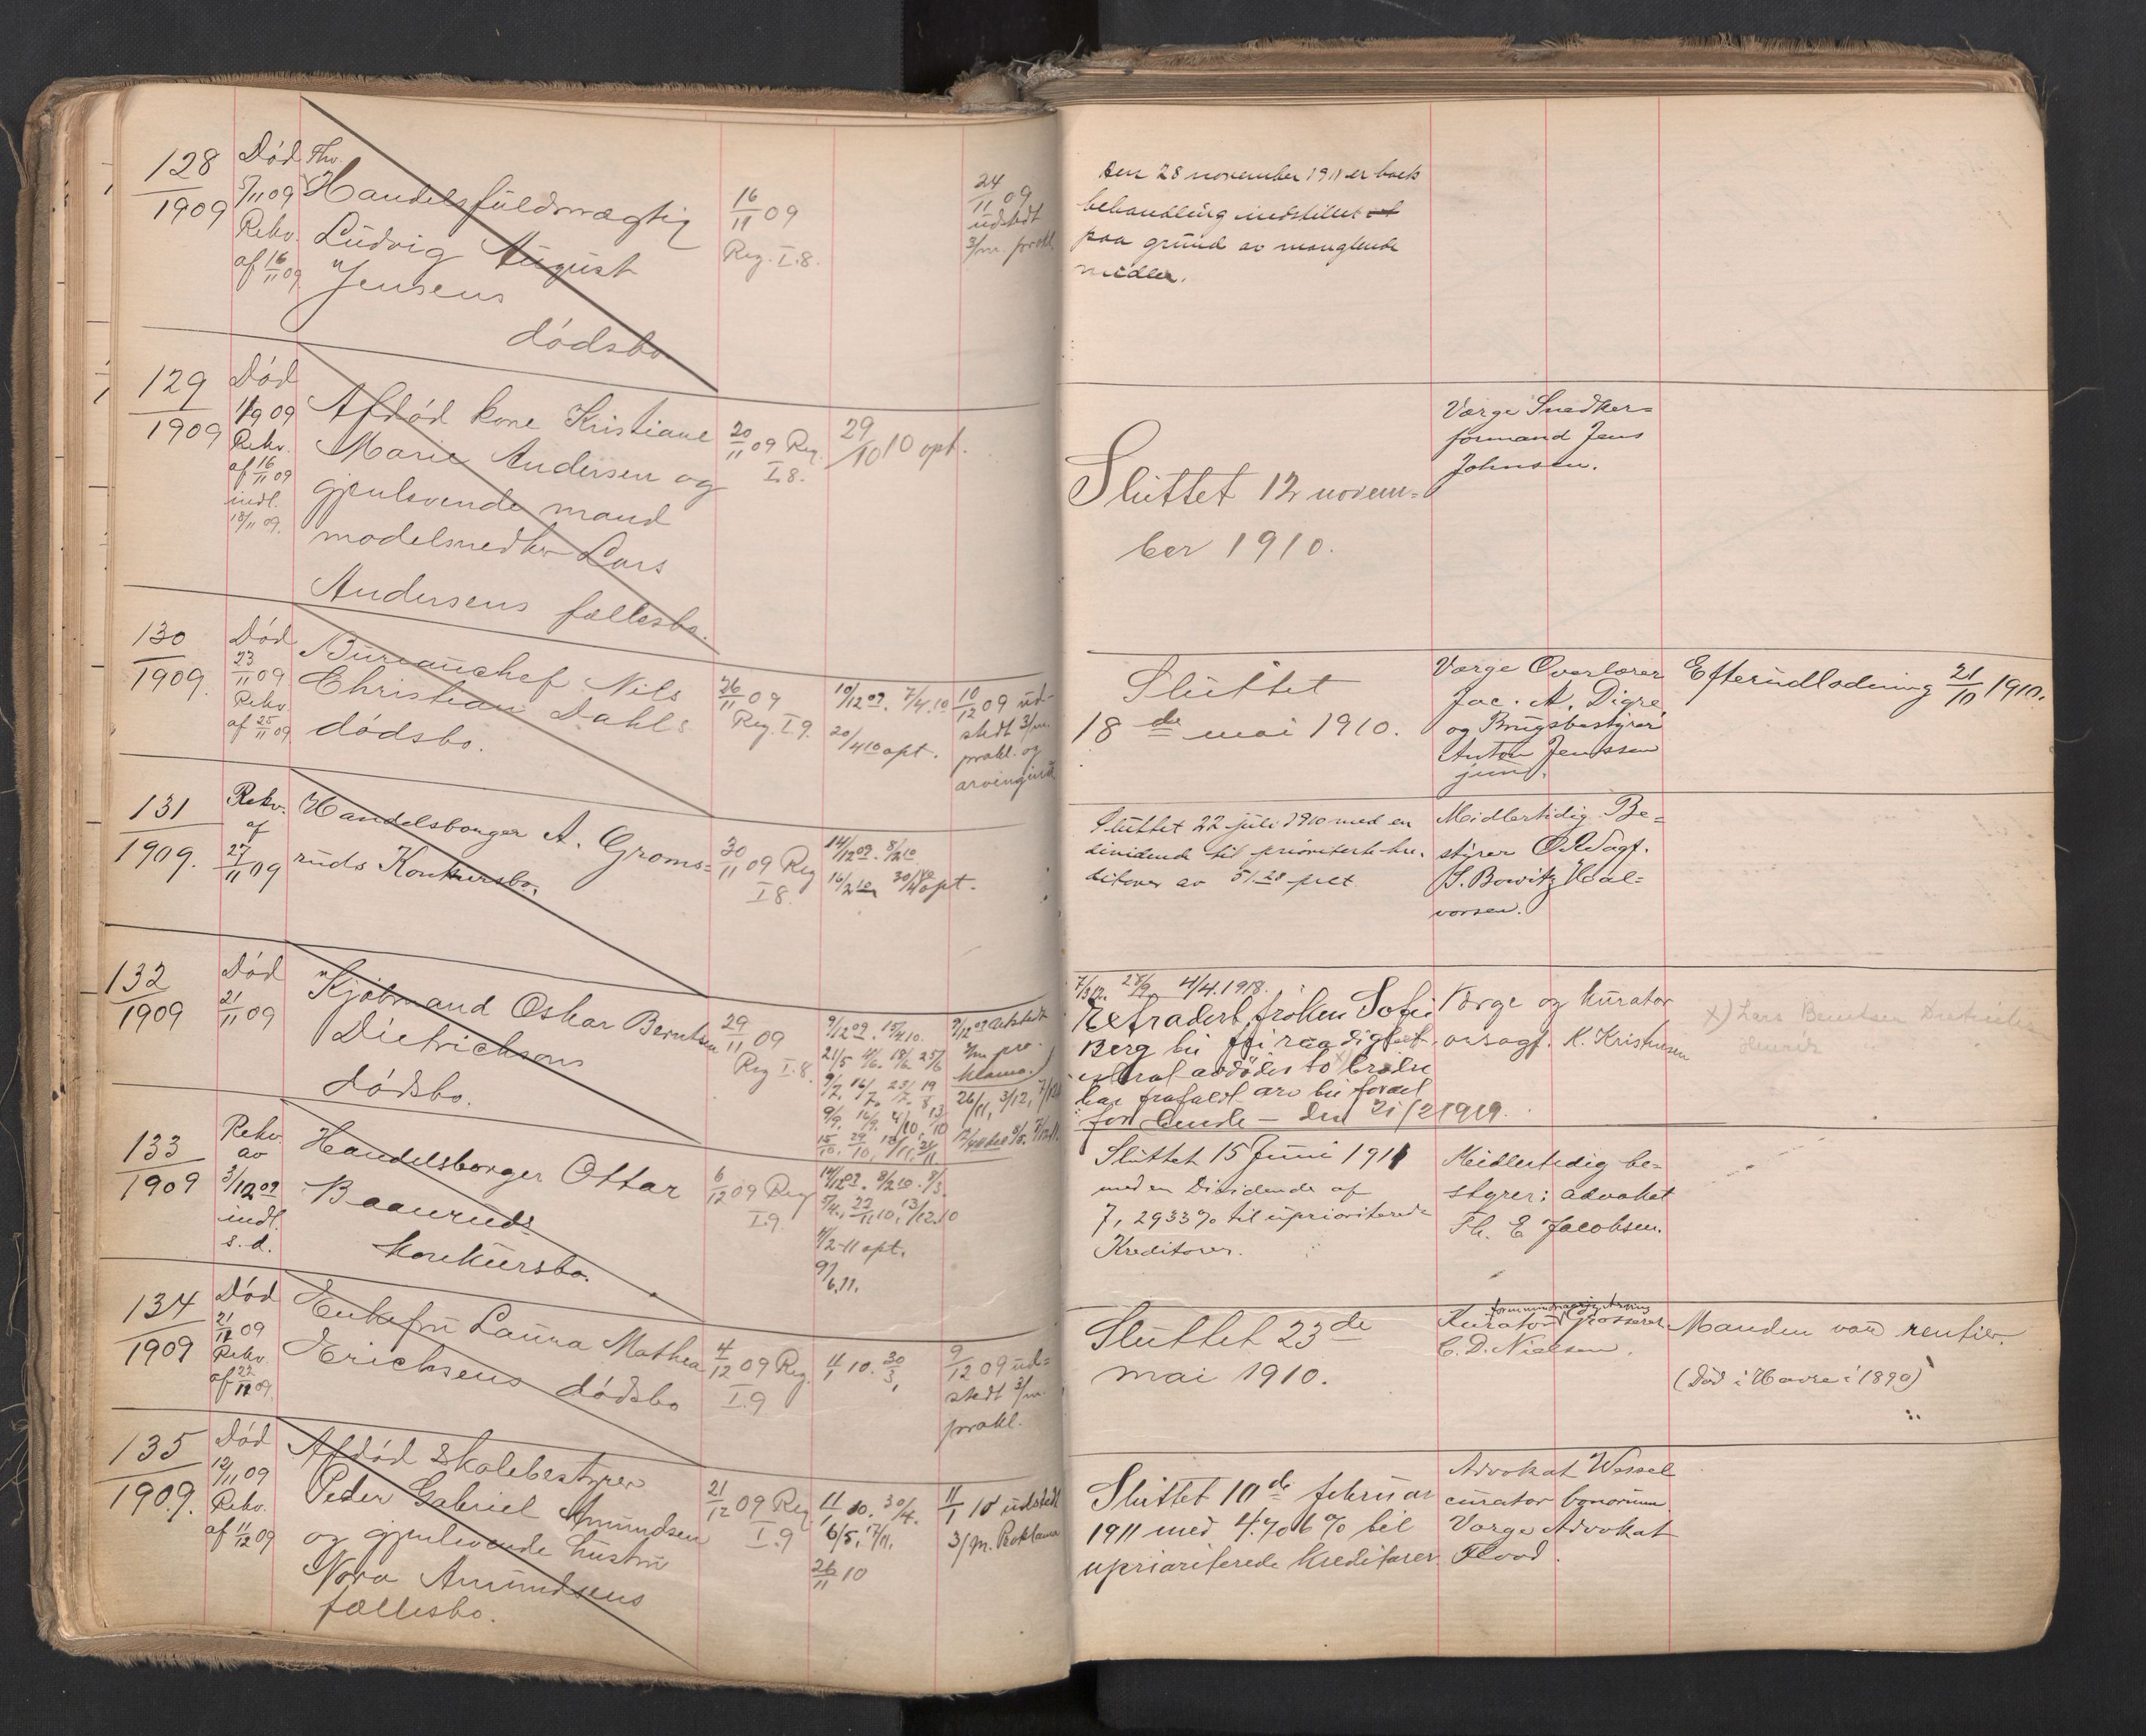 128
1909
Død
5/11 09
Rekv.
af 16/11 09
Fhv.
Handelsfuldmægtig
Ludvig August
Jensens
dødsbo
16/11 09
Reg. I.8.
24/11 09
udstedt
3/m. prokl.
Den 28 november 1911 er bobe
behandling indstillet
paa grund av manglende
midler.
129
1909
Død
1/9 09
Rekv.
af 16/11 09
indl.
18/11 09.
Afdød kone Kristiane
Marie Andersen og
gjenlevende mand
modelsnedker Lars
Andersens fællesbo.
20/11 09 Reg.
I.8.
29/10 10 opt.
Sluttet 12 novem=
ber 1910.
Værge Snedker=
formand Jens
Johnsen.
130
1909.
Død
23/11 09
Rekv
af 25/11 09
Bureauchef Nils
Christian Dahls
dødsbo.
26/11 09
Reg I.9.
10/12 09. 7/4.10
20/4 10 opt.
10/12 09 ud-
stedt 3/m.
prokl. og
arveindk.
Sluttet
18de mai 1910.
Værge Overlærer
Jac. A. Digre
og Brugsbestyrer
Anton Jenssen
jun.
Efterudlodning 21/10 1910.
131
1909.
Rekv.
af
27/11 09
Handelsborger A. Groms=
ruds Konkursbo.
30/11 09 Reg
I 8.
14/12 09. 8/2 10
16/2 10 30/4 10 opt.
Sluttet 22 juli 1910 med en
dividende til prioriterte kre-
ditorer av 51.28 pct.
Midlertidig Be=
styrer O.R.Sagf.
S. Bowitz Hal=
vorsen.
132
1909
Død
21/11 09
Kjøbmand Oskar Berntsen
Dietrichsons
dødsbo.
29/11 09
Reg I.8.
9/12 09. 15/4.10.
9/12 09 utstedt
3/m pro-
klama.
26/11, 3/12,
7/3 12. 4/4.1918.
Extradert frøken Sofie
Berg
den 21/2 1919.
Værge og kurator
orsagf. K. Kristensen
x) Lars Berntsen
Henrik
133
1909
Rekv.
av
3/12 09
indl.
s. d.
Handelsborger Ottar
Baanruds
konkursbo.
6/12 09 Reg
I.9.
14/12 09. 8/2 10. 8/3.
5/4., 22/11 10, 13/12.10
4/2-11 opt.
9/6.11.
Sluttet 15 Juni 1911
med en Dividende af
7,2933% til uprioriterede
Kreditorer.
Midlertidig be=
styrer: advokat
Th. E Jacobsen.
134
1909
Død
21/11 09
Rekv.
af 22/11 09.
Enkefru Laura Mathea
Erichsens dødsbo
4/12 09 Reg.
I.9
4/1 10. 30/3,
9/12 09 ud=
stedt 3/m.
prokl.
Sluttet 23de
mai 1910.
Kurator Grosserer
C. D. Nielsen.
Manden var rentier.
(Død i Havre i 1890)
135
1909.
Død
12/11 09
Rekv.
af 11/12 09
Afdød Skolebestyrer
Peder Gabriel Amundsen
og gjenlevende hustru
Nora Amundsens
fællesbo.
21/12 09 Reg
I.9
11/1 10. 30/4.
6/5. 17/11.
26/11 10
11/1 10 udstedt
3/m. Proklama
Sluttet 10de februar
1911 med 4.706% til
uprioriterede kreditorer
Advokat Wessel
curator bonorum.
Værge Advokat
Flood.